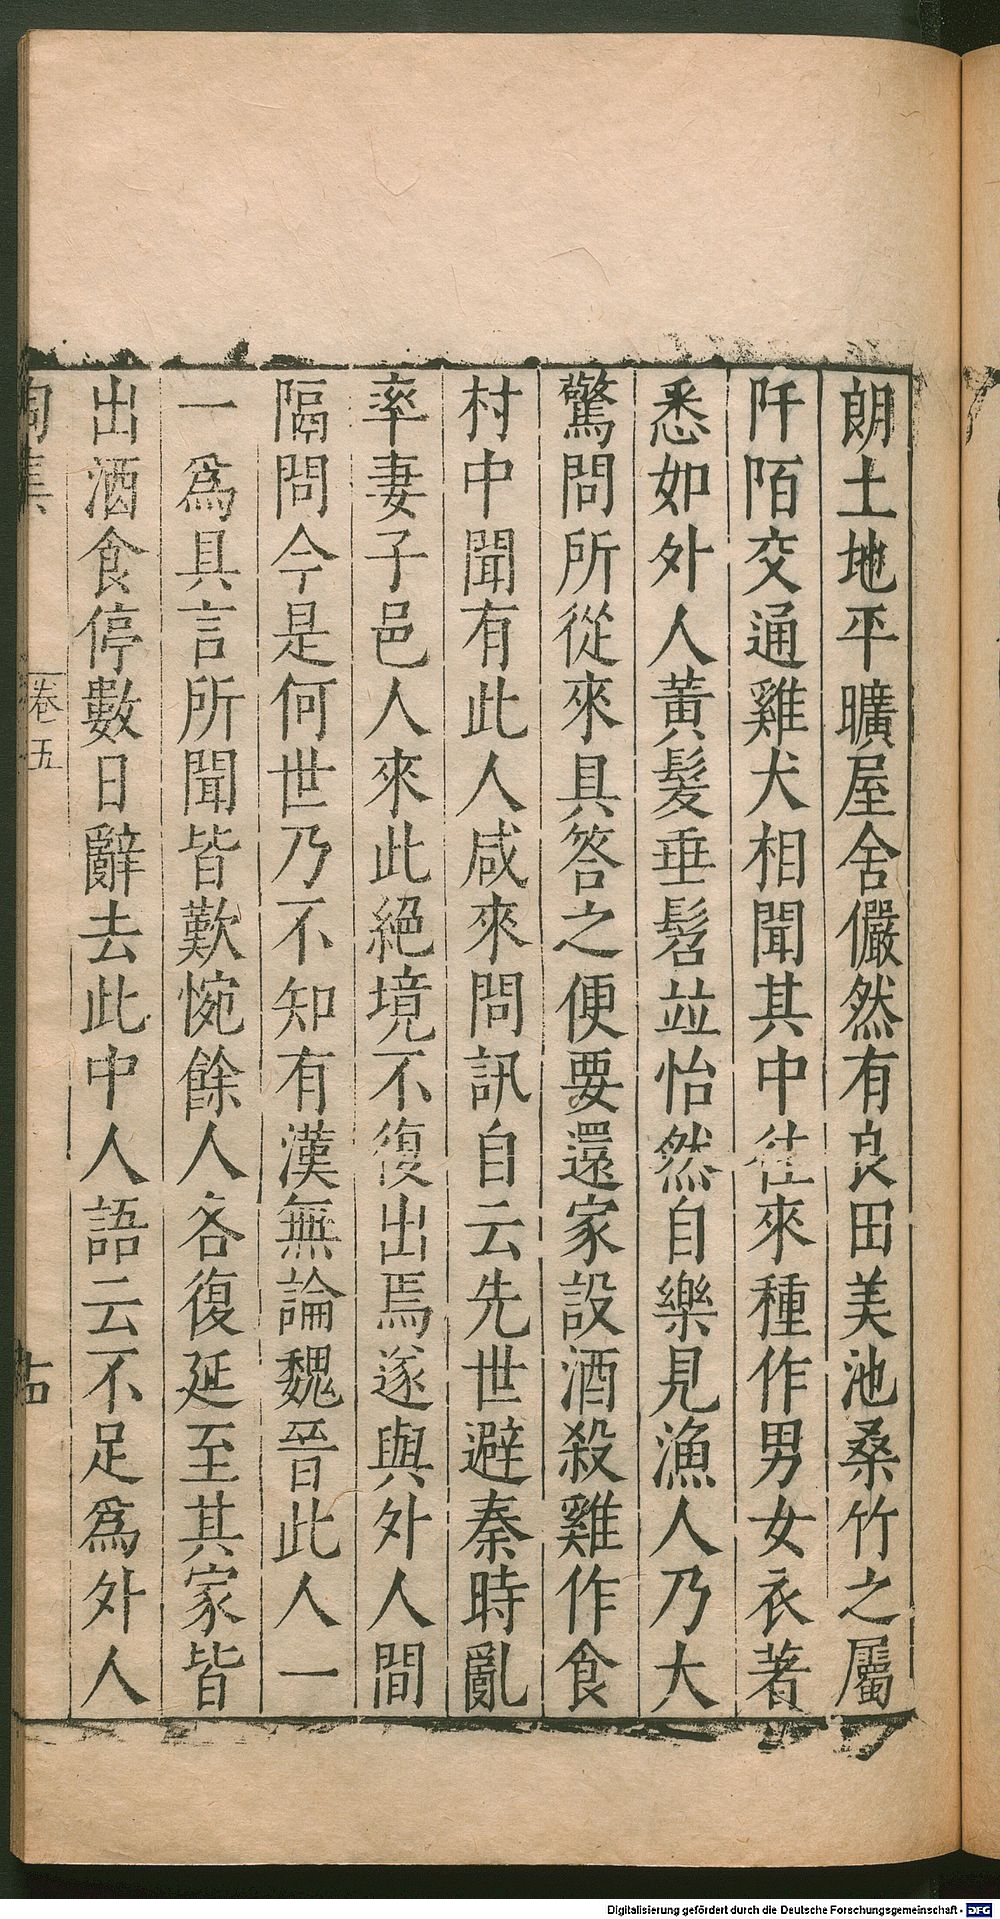 朗土地平曠屋舍儼然有良田美池桑竹之屬
阡陌交通雞犬相聞其中徃來種作男女衣著
悉如外人黃髮垂髫並怡然自樂見漁人乃大
驚問所從來具答之便要還家設酒殺雞作食
村中聞有此人咸來問訊自云先世避秦時亂
率妻子邑人來此絕境不復出焉遂與外人間
隔問今是何世乃不知有漢無論魏晉此人一
一爲具言所聞皆歎惋餘人各復延至其家皆
出酒食停數日辭去此中人語云不足爲外人
陶集 卷五
Digitalisierung gefördert durch die Deutsche Forschungsgemeinschaft - DFG